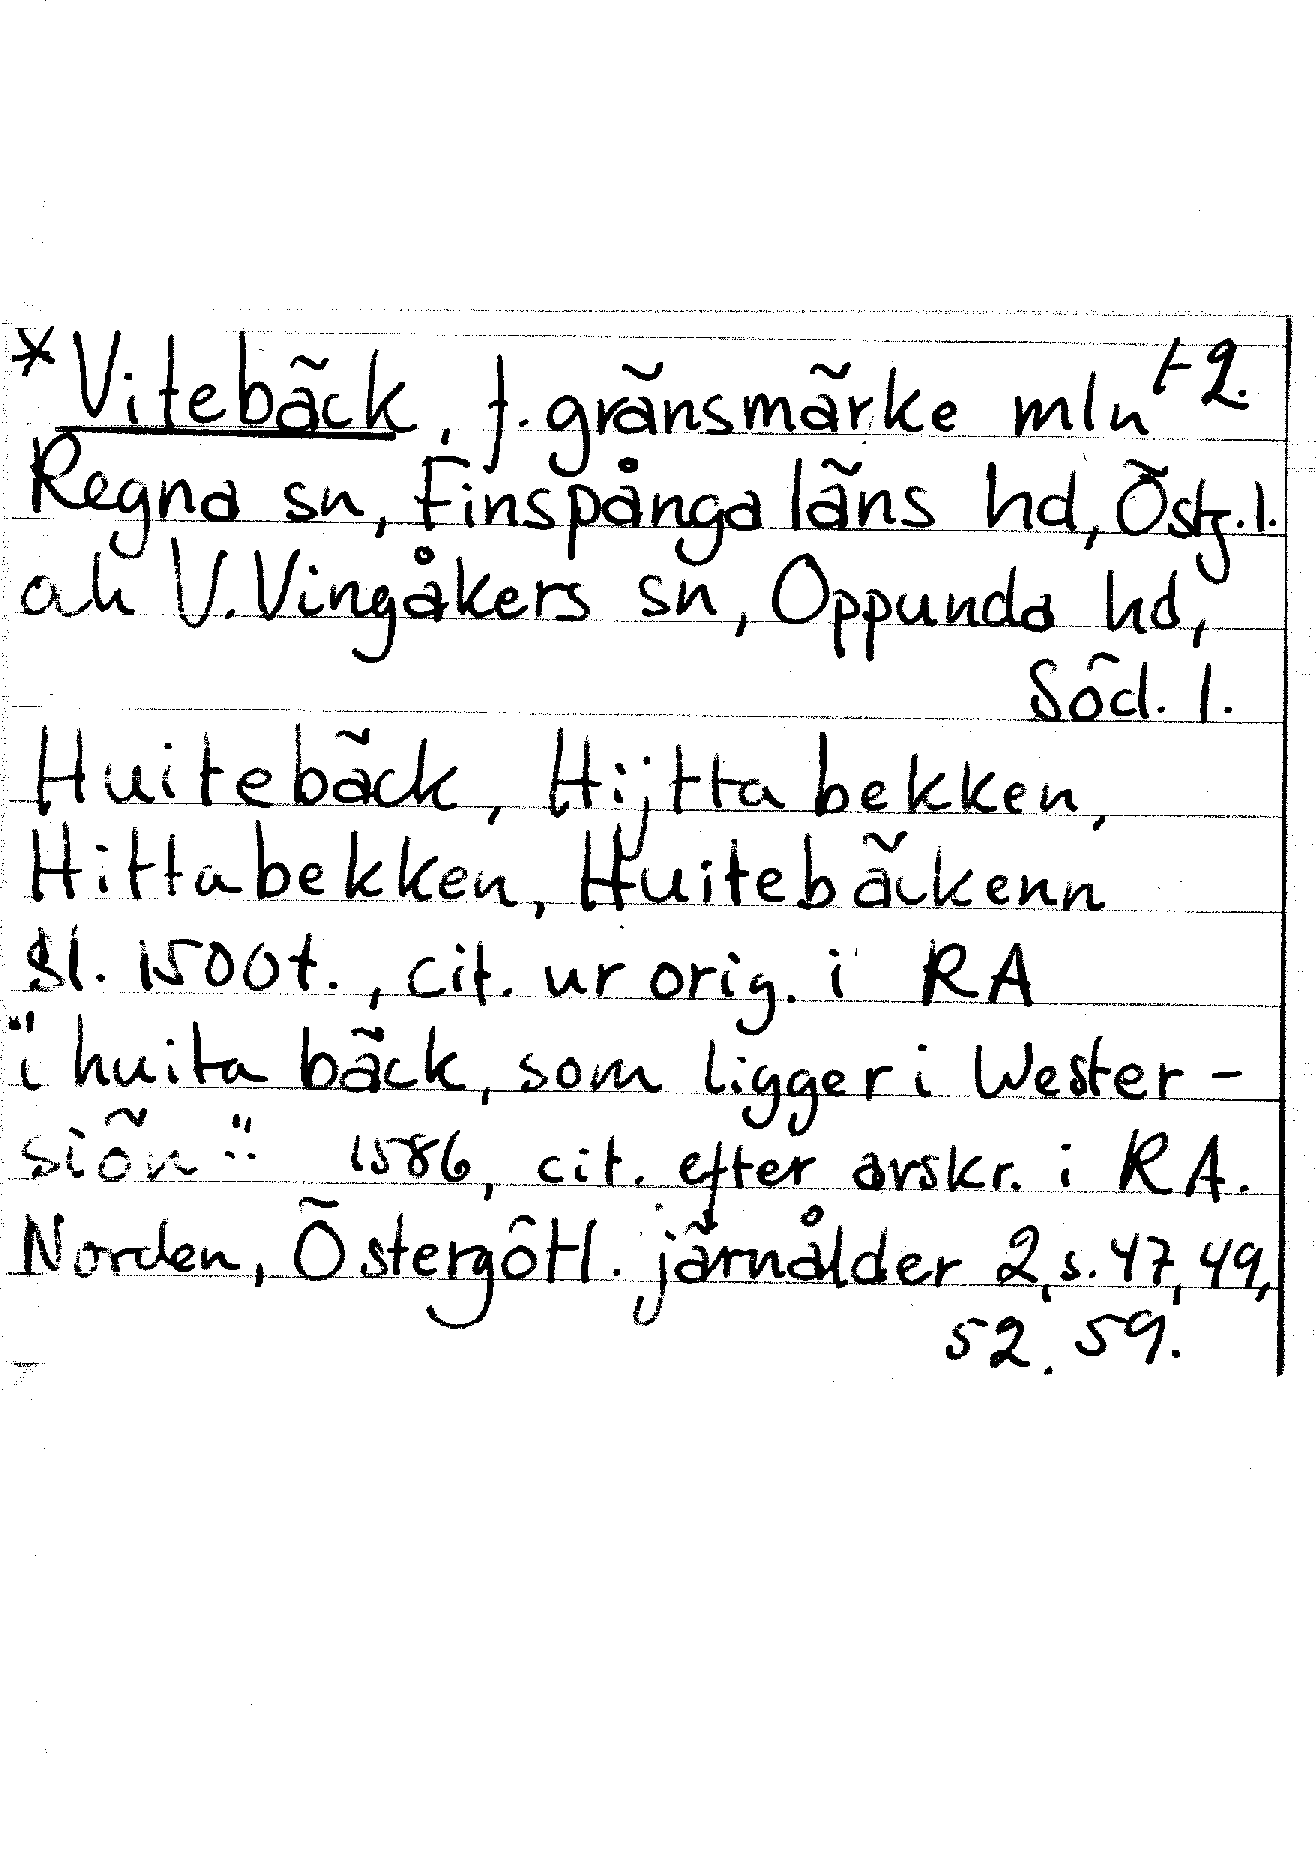 *Vitebäck, f. gränsmärke mln t 2.
Regna sn, Finspånga läns hd, Östg. l.
och V. Vingåkers sn, Oppunda hd,
Söd. l.
Huitebäck, Hijtta bekken,
Hittabekken, Huitebäckenn
sl. 1500t., cit. ur orig. i RA
"i huita bäck, som ligger i Wester-
siön": 1586, cit. efter avskr. i RA.
Norden, Östergötl. järnålder 2, s. 47, 49,
52. 59.